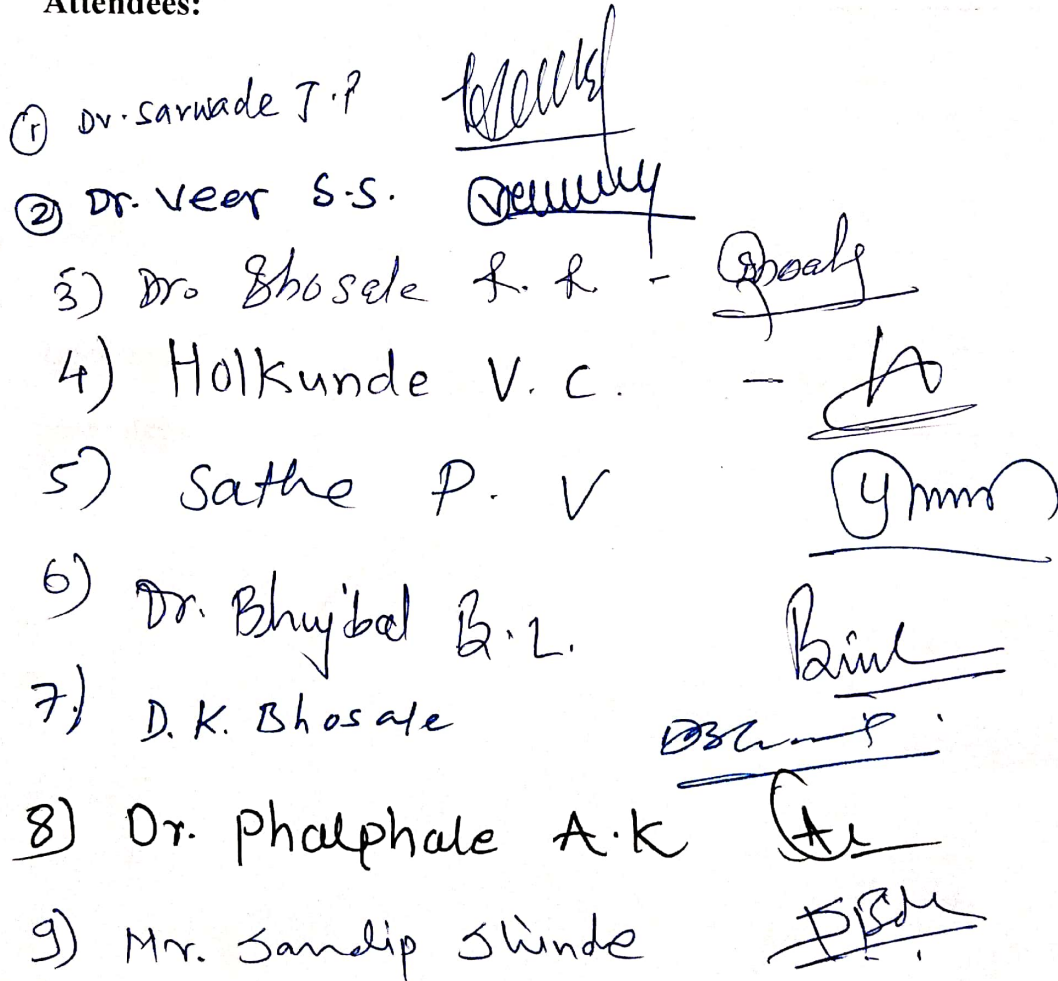 Attendees:
① Dr. Sarwade J.P
② Dr. Veer S.S.
3) Dr. Bhosale R. R -
4) Holkunde V. C. -
5) Sathe P. V
6) Dr. Bhujbal B.L.
7.) D. K. Bhosale
8) Dr. Phalphale A.K
9) Mr. Sandip Shinde